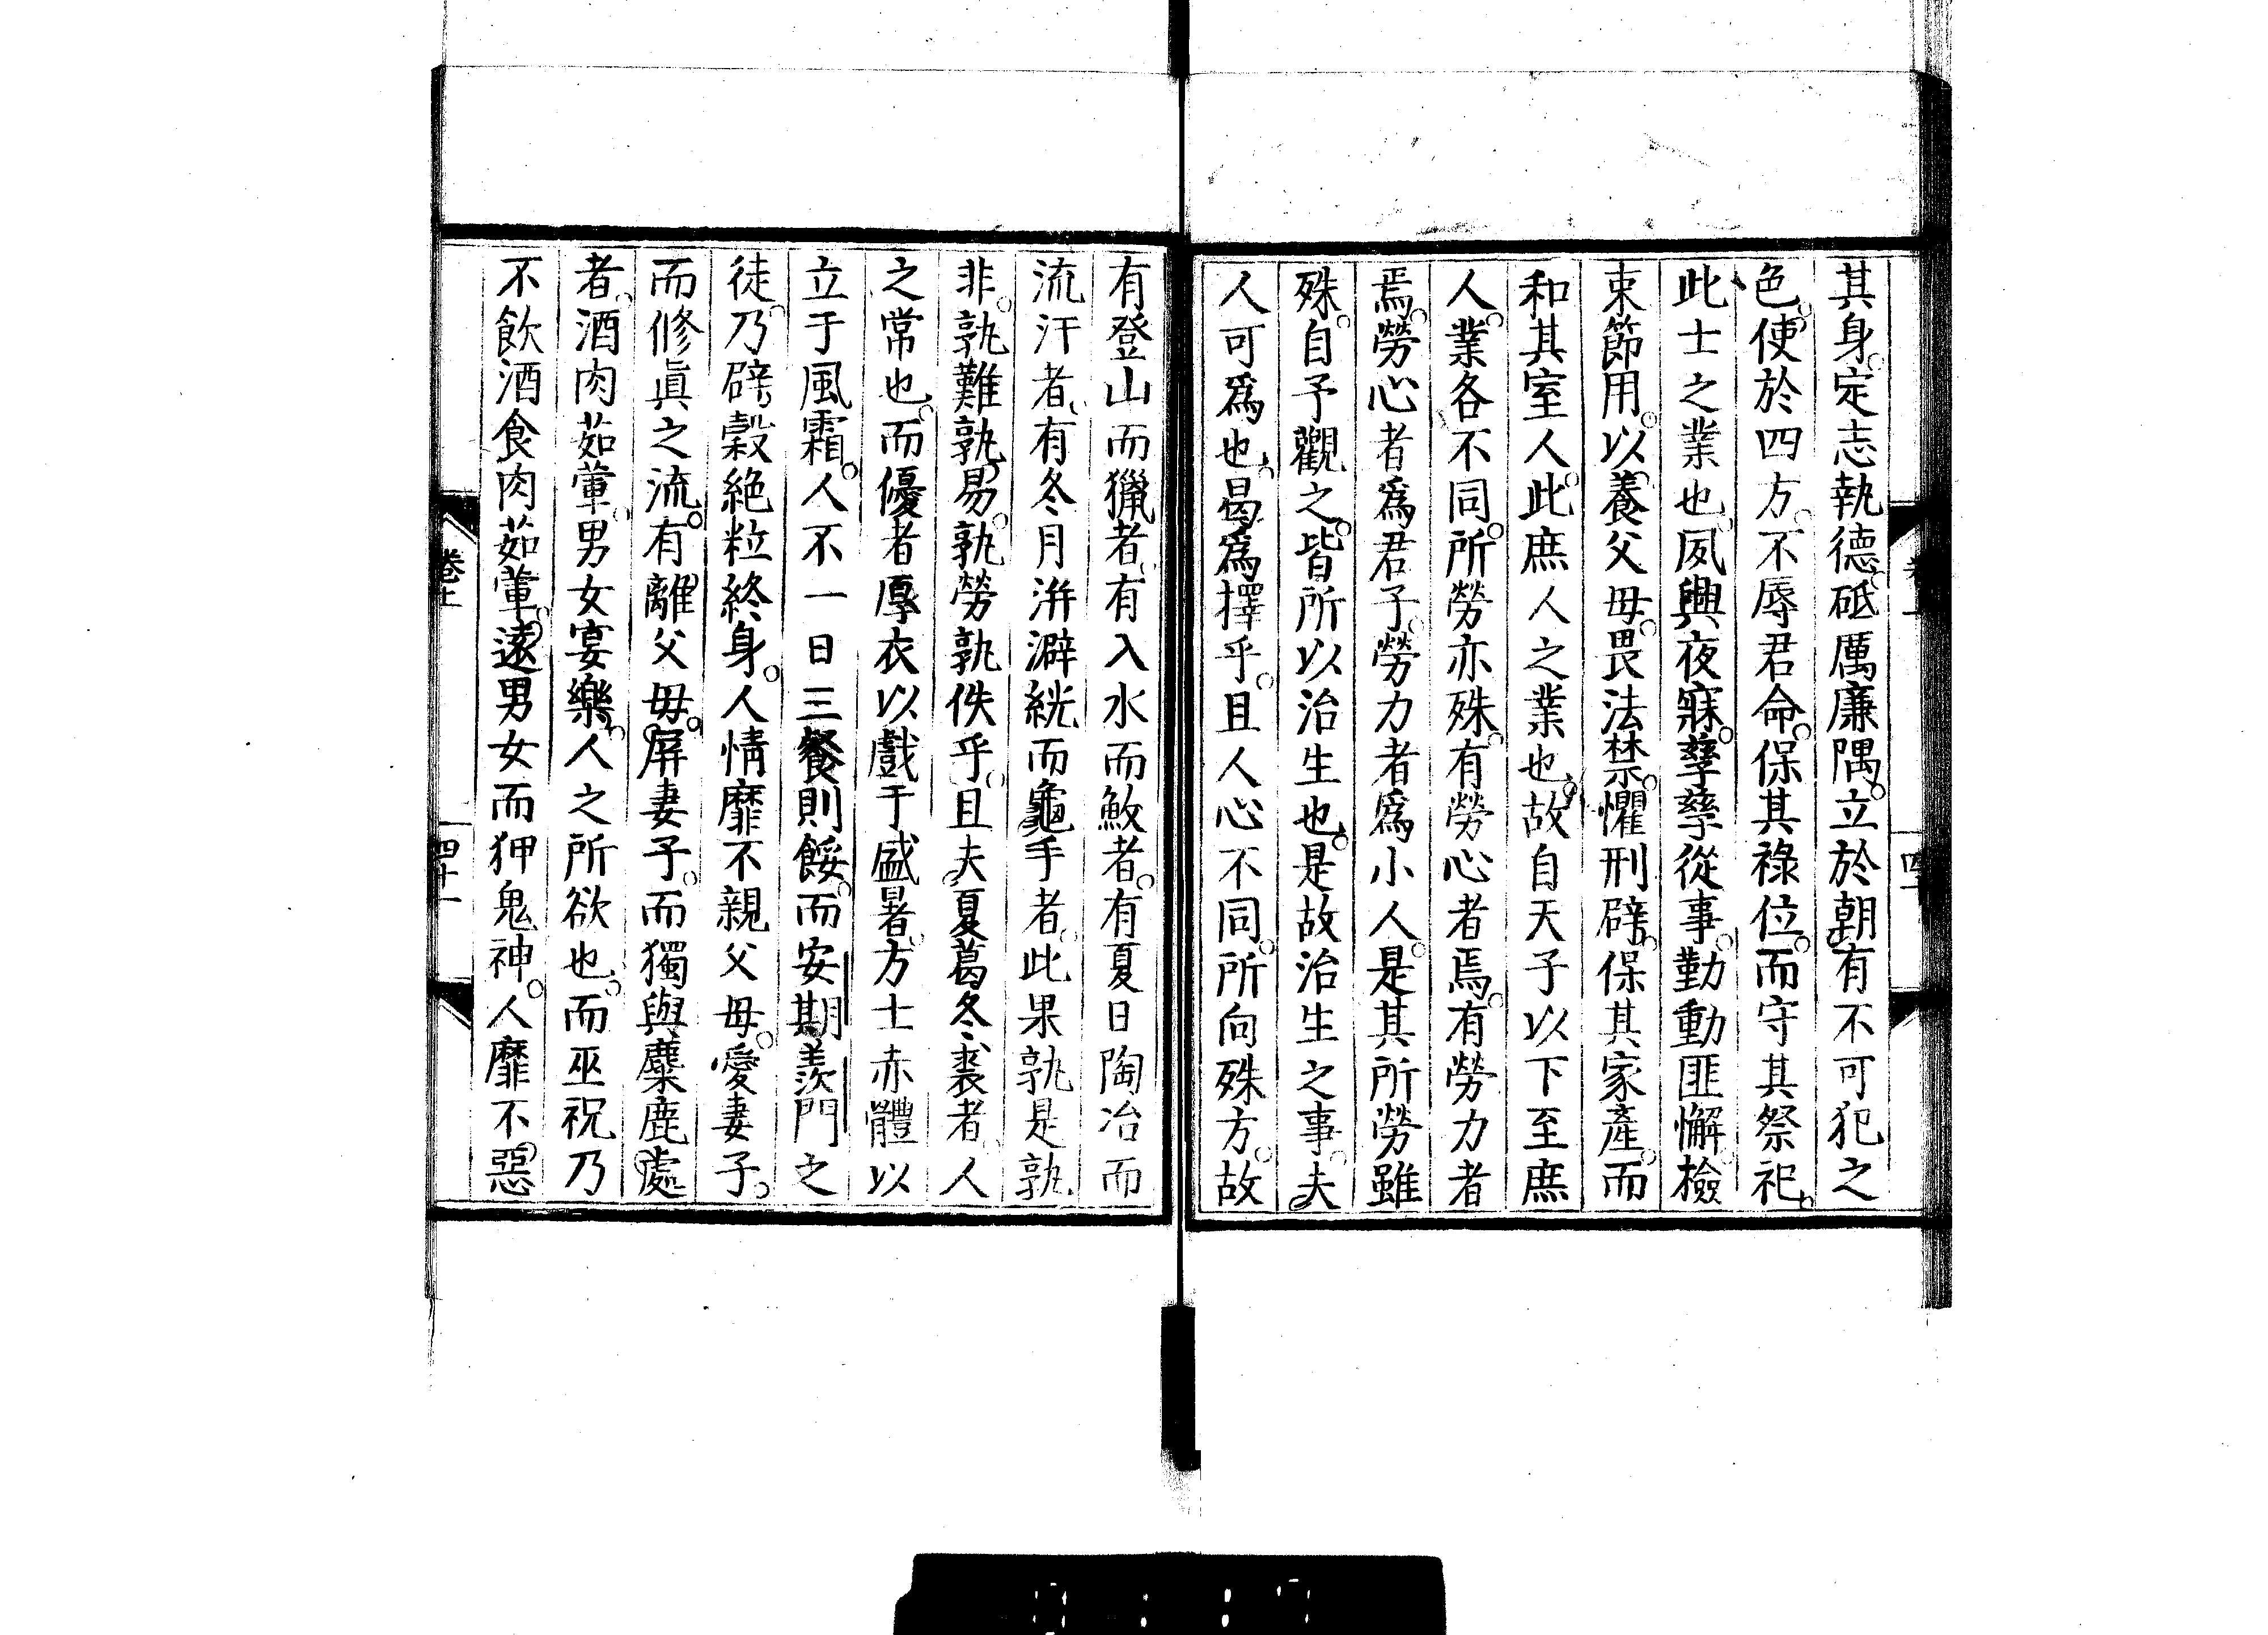 其身。定志執德。砥厲廉隅。立於朝。有不可犯之
色。使於四方。不辱君命。保其祿位。而守其祭祀。
此士之業也。夙興夜寐。孳孳從事。勤動匪懈。檢
束節用。以養父母。畏法禁。懼刑辟。保其家產。而
和其室人。此庶人之業也。故自天子以下至庶
人。業各不同。所勞亦殊。有勞心者焉。有勞力者
焉。勞心者爲君子。勞力者爲小人。是其所勞雖
殊。自予觀之。皆所以治生也。是故治生之事。夫
人可爲也。曷爲擇乎。且人心不同。所向殊方。故
有登山而獵者。有入水而敿者。有夏日陶冶而
流汗者。有冬月洴澼絖而龜手者。此果孰是孰
非。孰難孰易。孰勞孰佚乎。且夫夏葛冬裘者。人
之常也。而優者厚衣以戲于盛暑。方士赤體以
立于風霜。人不一日三餐則餒。而安期羨門之
徒。乃辟穀絕粒終身。人情靡不親父母。愛妻子。
而修眞之流。有離父母。屏妻子。而獨與麋鹿處
者。酒肉茹葷。男女宴樂。人之所欲也。而巫祝乃
不飲酒食肉茹葷。遠男女而狎鬼神。人靡不惡
卷上
四十一